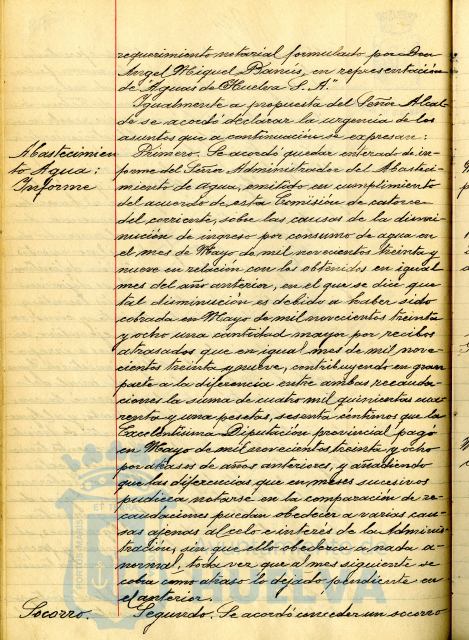 requerimiento notarial formulado por Don
Angel Miguel Bancés, en representación
de "Aguas de Huelva S. A."
Igualmente a propuesta del Señor Alcal-
de se acordó declarar la urgencia de los
asuntos que a continuación se expresan:
Abastecimien
to Agua:
Informe
Primero. Se acordó quedar enterado de in-
forme del Señor Administrador del Abasteci-
miento de agua, emitido en cumplimiento
del acuerdo de esta Comisión de catorce
del corriente, sobre las causas de la dismi-
nución de ingreso por consumo de agua en
el mes de Mayo de mil novecientos treinta y
nueve en relación con los obtenidos en igual
mes del año anterior, en el que se dice que
tal disminución es debida a haber sido
cobrada en Mayo de mil novecientos treinta
y ocho una cantidad mayor por recibos
atrasados que en igual mes de mil nove-
cientos treinta y nueve, contribuyendo en gran
parte a la diferencia entre ambas recauda-
ciones la suma de cuatro mil quinientas cua-
renta y una pesetas, sesenta céntimos que la
Excelentísima Diputación provincial pagó
en Mayo de mil novecientos treinta y ocho
por atrasos de años anteriores, y añadiendo
que las diferencias que en meses sucesivos
pudiera notarse en la comparación de re-
caudaciones puedan obedecer a varias cau-
sas ajenas al celo e interés de la Adminis-
tración, sin que ello obedezca a nada a-
normal, toda vez que al mes siguiente se
cobra como atraso lo dejado pendiente en
el anterior.
Socorro.
Segundo. Se acordó conceder un socorro
HUELVA